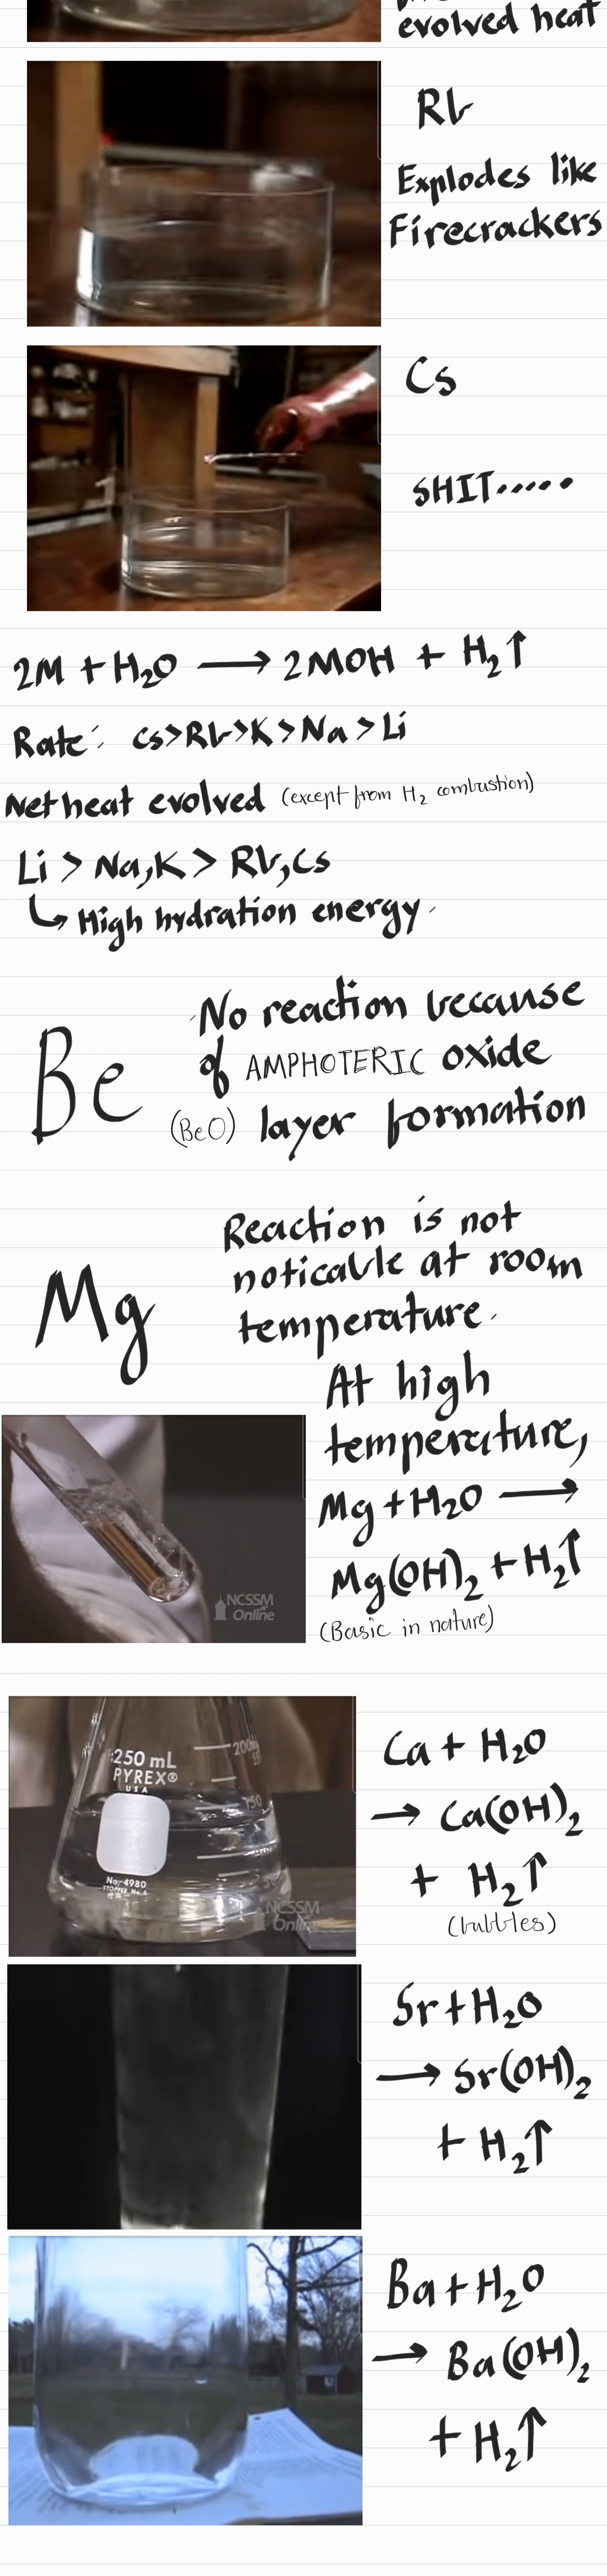 evolved heat
Rb
Explodes like
Firecrackers
Cs
SHIT.....
2M + H₂O ⟶ 2MOH + H₂↑
Rate: Cs>Rb>K>Na>Li
Net heat evolved (except from H₂ combustion)
Li > Na,K > Rb,Cs
↳ High hydration energy.
Be
No reaction because
of AMPHOTERIC oxide
(BeO) layer formation
Mg
Reaction is not
noticable at room
temperature.
At high
temperature,
Mg+H₂O ⟶
Mg(OH)₂ + H₂↑
(Basic in nature)
NCSSM
Online
250 mL
PYREX®
USA
200
150
No. 4980
STOPPER No. 6
NCSSM
Online
Ca + H₂O
→ Ca(OH)₂
+ H₂↑
(bubbles)
Sr+H₂O
⟶ Sr(OH)₂
+ H₂↑
Ba+H₂O
⟶ Ba(OH)₂
+ H₂↑